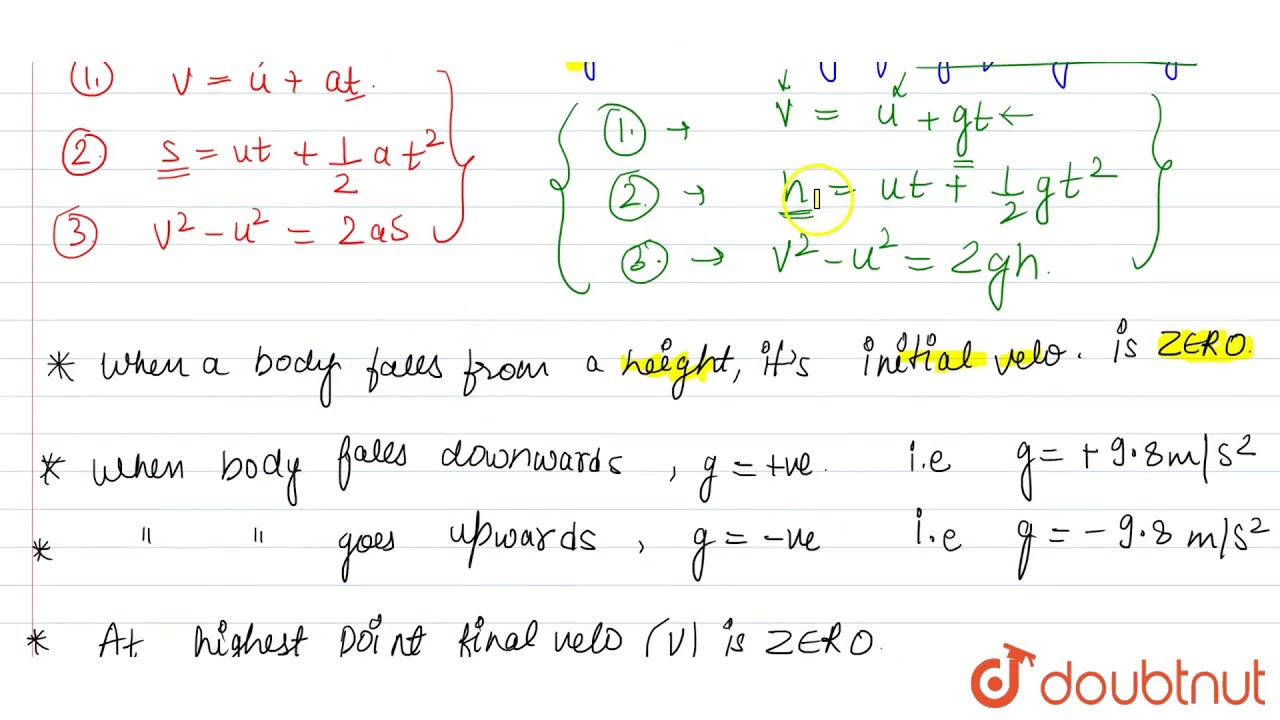 (1.) v = u + at.
(2.) s = ut + 1/2 at²
(3.) v² - u² = 2as
(1.) → v = u + gt ←
(2.) → h = ut + 1/2 gt²
(3.) → v² - u² = 2gh.
* When a body falls from a height, it's initial velo. is ZERO.
* When body falls downwards, g = +ve. i.e g = +9.8 m/s²
* " " goes upwards, g = -ve i.e g = -9.8 m/s²
* At highest point final velo (v) is ZERO.
doubtnut